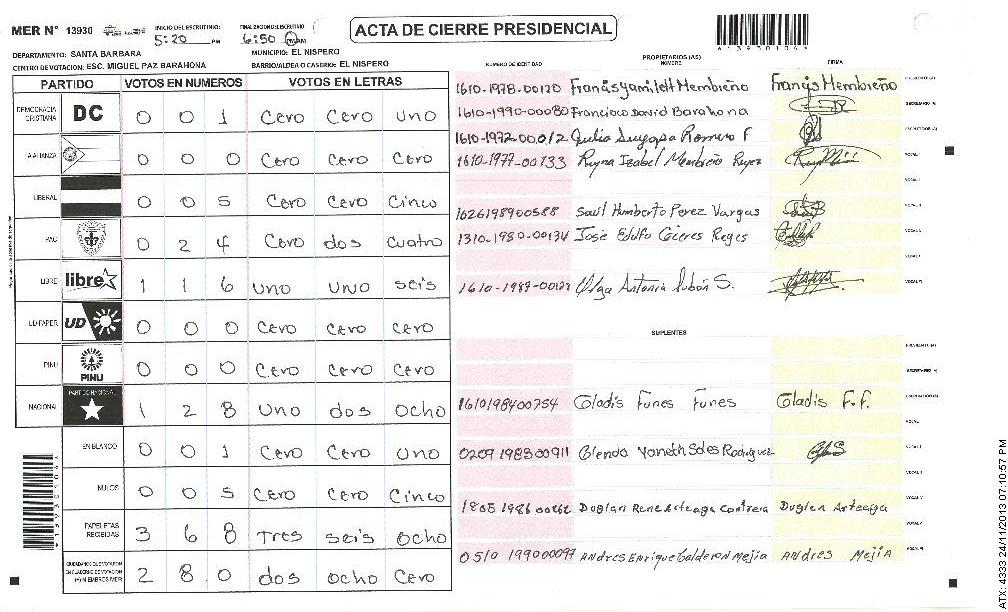 MER N° 13930 INICIO DEL ESCRUTINIO: 5:20 PM FINALIZACION DEL ESCRUTINIO: 6:50 PM ACTA DE CIERRE PRESIDENCIAL
DEPARTAMENTO: SANTA BARBARA MUNICIPIO: EL NISPERO
CENTRO DE VOTACION: ESC. MIGUEL PAZ BARAHONA BARRIO/ALDEA O CASERIO: EL NISPERO
PARTIDO VOTOS EN NUMEROS VOTOS EN LETRAS
DEMOCRACIA CRISTIANA DC 0 0 1 Cero Cero uno
LA ALIANZA 0 0 0 Cero Cero Cero
LIBERAL 0 0 5 Cero Cero Cinco
PAC 0 2 4 Cero dos cuatro
LIBRE libre 1 1 6 uno uno seis
UD-FAPER UD 0 0 0 Cero Cero Cero
PINU PINU 0 0 0 Cero Cero Cero
NACIONAL PARTIDO NACIONAL 1 2 8 uno dos ocho
EN BLANCO 0 0 1 Cero Cero uno
NULOS 0 0 5 Cero Cero Cinco
PAPELETAS RECIBIDAS 3 6 8 Tres seis ocho
2 8 0 dos ocho Cero
NUMERO DE IDENTIDAD PROPIETARIOS (AS) NOMBRE FIRMA
1610-1978-00120 Francis Membreño
1610-1990-00080 Francisco David Barahona
Romero F
1610-1977-00133
1626198900588 Saúl Humberto Perez Vargas
1310-1980-00134 José Reyes
Antonia
SUPLENTES
1610198400754 Gladis Funes Funes Gladis F.F.
0209 198300911 Glenda Yaneth Rodriguez
Arteaga
0510 Andres Enrique Calderon Mejia Andres Mejia
ATX: 4333 24/11/2013 07:10:57 PM